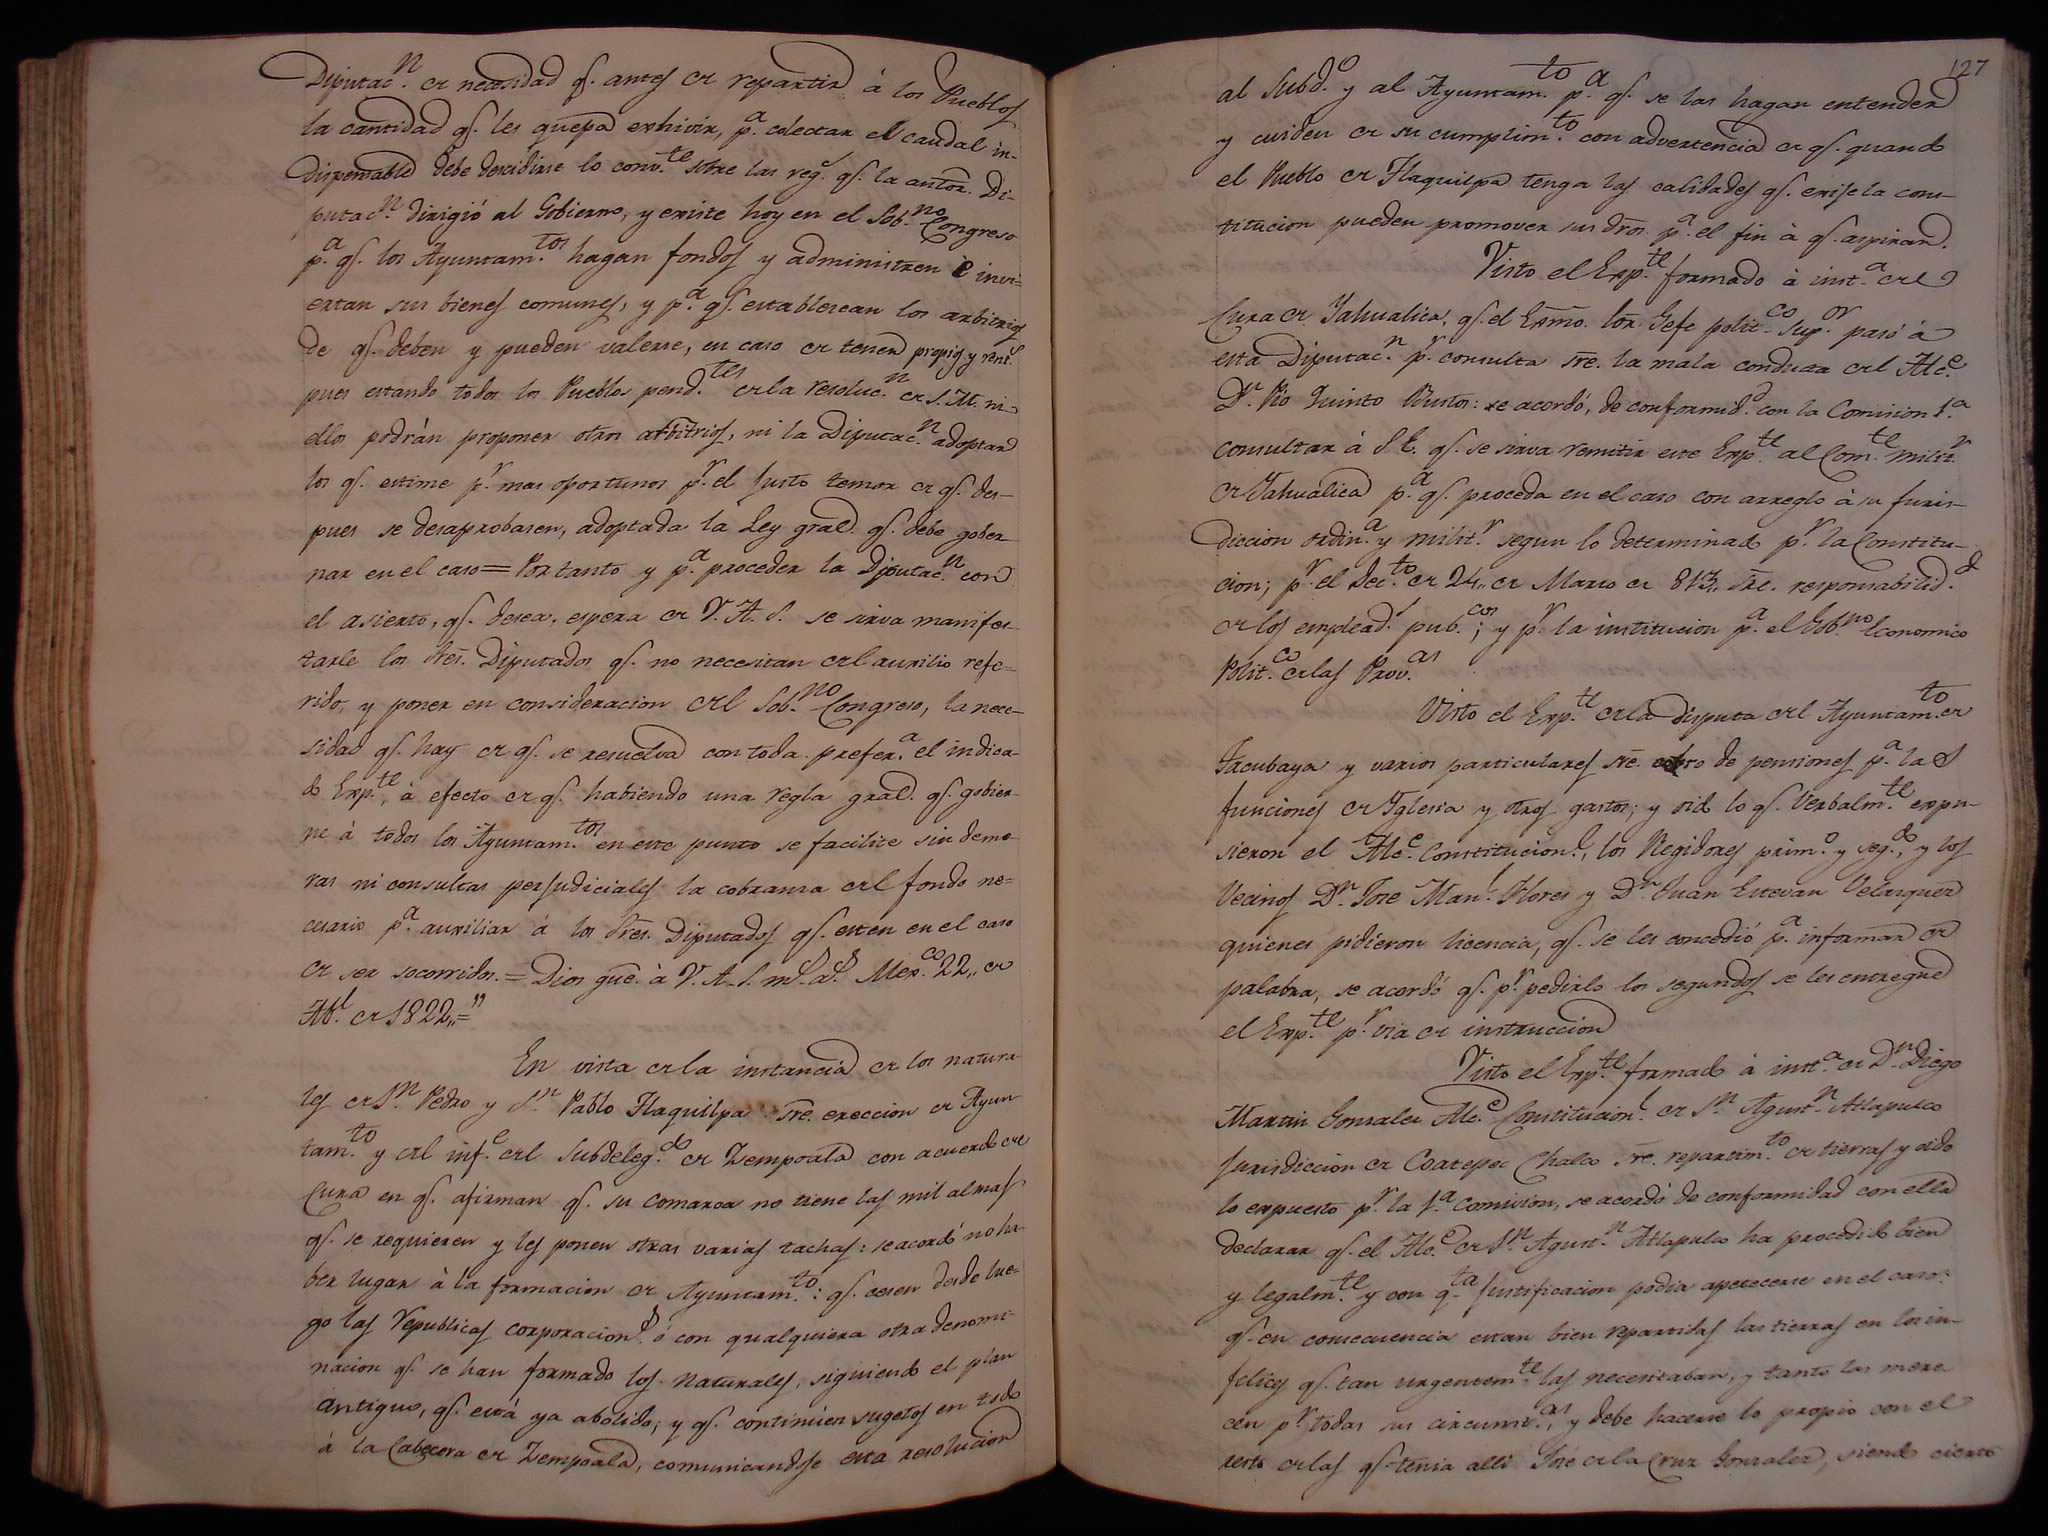 Diputac.n de necesidad q.e antes de repartir á los Pueblos
la cantidad q.e les quepa exhivir, p.a colectar el caudal in-
dispensable debe decidirse lo conv.te sobre las reg.s q.e la anter. Di-
putac.n dirigió al Gobierno, y existe hoy en el Sob.no Congreso
p.a q.e los Ayuntam.tos hagan fondos y administren é invi-
ertan sus bienes comunes, y p.a q.e establescan los arbitrios
de q.e deben y pueden valerse, en caso de tener propios y
pues estando todos los Pueblos pend.tes de la resoluc.n de S. M. ni
ellos podrán proponer otros arbitrios, ni la Diputac.n adoptar
los q.e estime p.r mas oportunos p.r el justo temor de q.e des-
pues se desaprobasen, adoptada la Ley gral. q.e debe gober-
nar en el caso = Por tanto y p.a proceder la Diputac.n con
el asierto, q.e desea, espera de V. A. S. se sirva manifes-
tarle los Sres. Diputados q.e no necesitan del auxilio refe-
rido, y poner en consideracion del Sob.no Congreso, la nece-
sidad q.e hay de q.e se resuelva con toda prefer.a el indica-
do Exp.te, á efecto de q.e habiendo una regla gral. q.e gobier-
ne á todos los Ayuntam.tos en este punto se facilite sin demo-
ras ni consultas perjudiciales la cobransa del fondo ne-
cesario p.a auxiliar á los Sres. Diputados q.e esten en el caso
de ser socorridos. = Dios gue. á V. A. S. m.s a.s Mex.co 22,, de
Ab.l de 1822,,="
En vista de la instancia de los natura-
les de S.n Pedro y S.n Pablo Tlaquilpa sre. ereccion de Ayun
tam.to y del inf.e del Subdeleg.do de Zempoala con acuerdo del
Cura en q.e afirman q.e su comarca no tiene las mil almas
q.e se requieren y les ponen otras varias tachas: se acordó no ha-
ber lugar á la formacion de Ayuntam.to: q.e cesen desde lue-
go las republicas corporacion.s ó con qualquiera otra denomi-
nacion q.e se han formado los naturales, siguiendo el plan
antiguo, q.e está ya abolido; y q.e continúen sugetos en todo
á la Cabecera de Zempoala, comunicandose esta resolucion
127
al Subd.o y al Ayuntam.to p.a q.e se las hagan entender
y cuiden de su cumplim.to con advertencia de q.e quando
el Pueblo de Tlaquilpa tenga las calidades q.e exije la cons-
titucion pueden promover sus dros. p.a el fin á q.e aspiran.
Visto el Exp.te formado á inst.a del
Cura de Yahualica, q.e el Exmo. Sor. Gefe polit.co sup.or pasó á
esta Diputac.n p.r consulta sre. la mala conducta del Alc.e
D.n Pio Quinto Bustos: se acordó, de conformid.d con la Comision 1.a
consultar á S. E. q.e se sirva remitir este Exp.te al Com.te milit.r
de Yahualica p.a q.e proceda en el caso con arreglo á su juris-
diccion ordin.a y milit.r segun lo determinado p.r la Constitu-
cion; p.r el Dec.to de 24,, de Marzo de 813,, sre. responsabilid.d
de los emplead.s pub.cos; y p.r la institucion p.a el Gob.no Economico
Polit.co de las Prov.as
Visto el Exp.te de la disputa del Ayuntam.to de
Tacubaya y varios particulares sre. cobro de pensiones p.a las
funciones de Yglesia y otros gastos; y oido lo q.e verbalm.te expu-
sieron el Alc.e Constitucion.l, los Regidores prim.o y seg.do, y los
Vecinos D.n Jose Man.l Flores y D.n Juan Estevan Velazquez
quienes pidieron licencia, q.e se les concedió p.a informar de
palabra, se acordó q.e p.r pedirlo los segundos se les entregue
el Exp.te p.r via de instruccion
Visto el Exp.te formado á inst.a de D.n Diego
Martin Gonzalez Alc.e Constitucion.l de S.n Agust.n Atlapulco
jurisdiccion de Coatepec Chalco sre. repartim.to de tierras y oido
lo expuesto p.r la 1.a Comision, se acordó de conformidad con ella
declarar q.e el Alc.e de S.n Agust.n Atlapulco ha procedido bien
y legalm.te y con q.ta justificacion podia apetecerse en el caso:
q.e en consecuencia estan bien repartidas las tierras en los in-
felices q.e tan urgentem.te las necesitaban, y tanto las mere
cen p.r todas sus circunst.as, y debe hacerse lo propio con el
resto de las q.e tenia alli José de la Cruz Gonzalez, siendo cierto